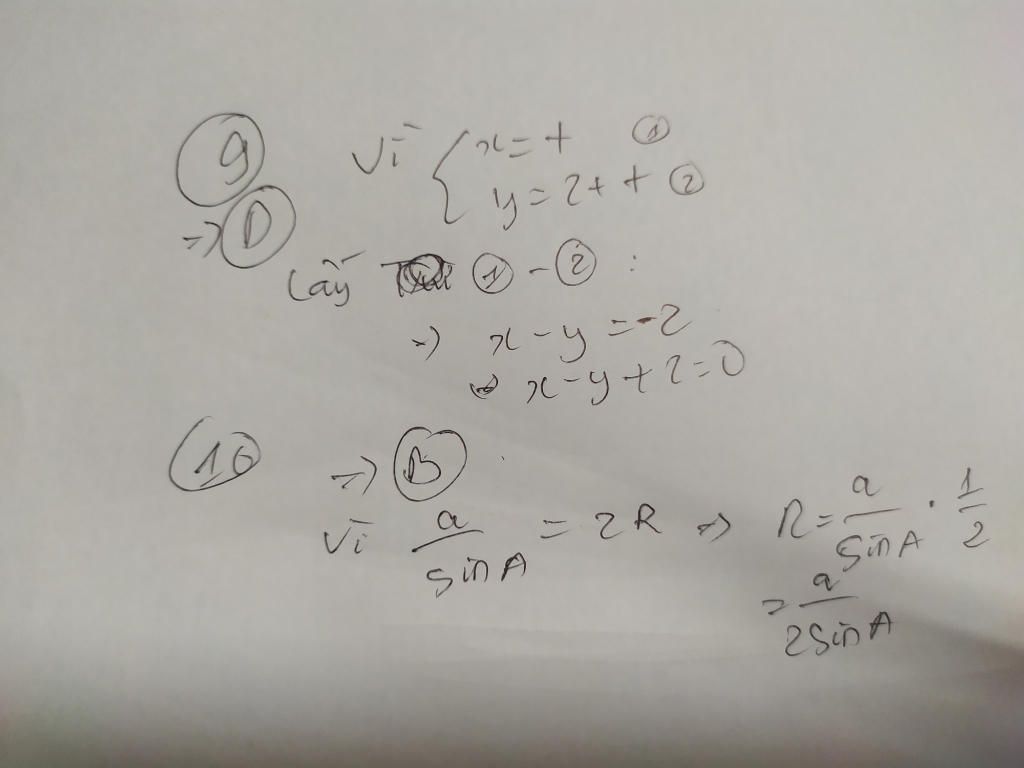 9 Vì { x = t ①
y = 2 + t ②
=> D
Lấy ① - ② :
=> x - y = -2
<=> x - y + 2 = 0
10 => B
Vì a/sin A = 2R => R = a/sin A · 1/2
= a/2 sin A